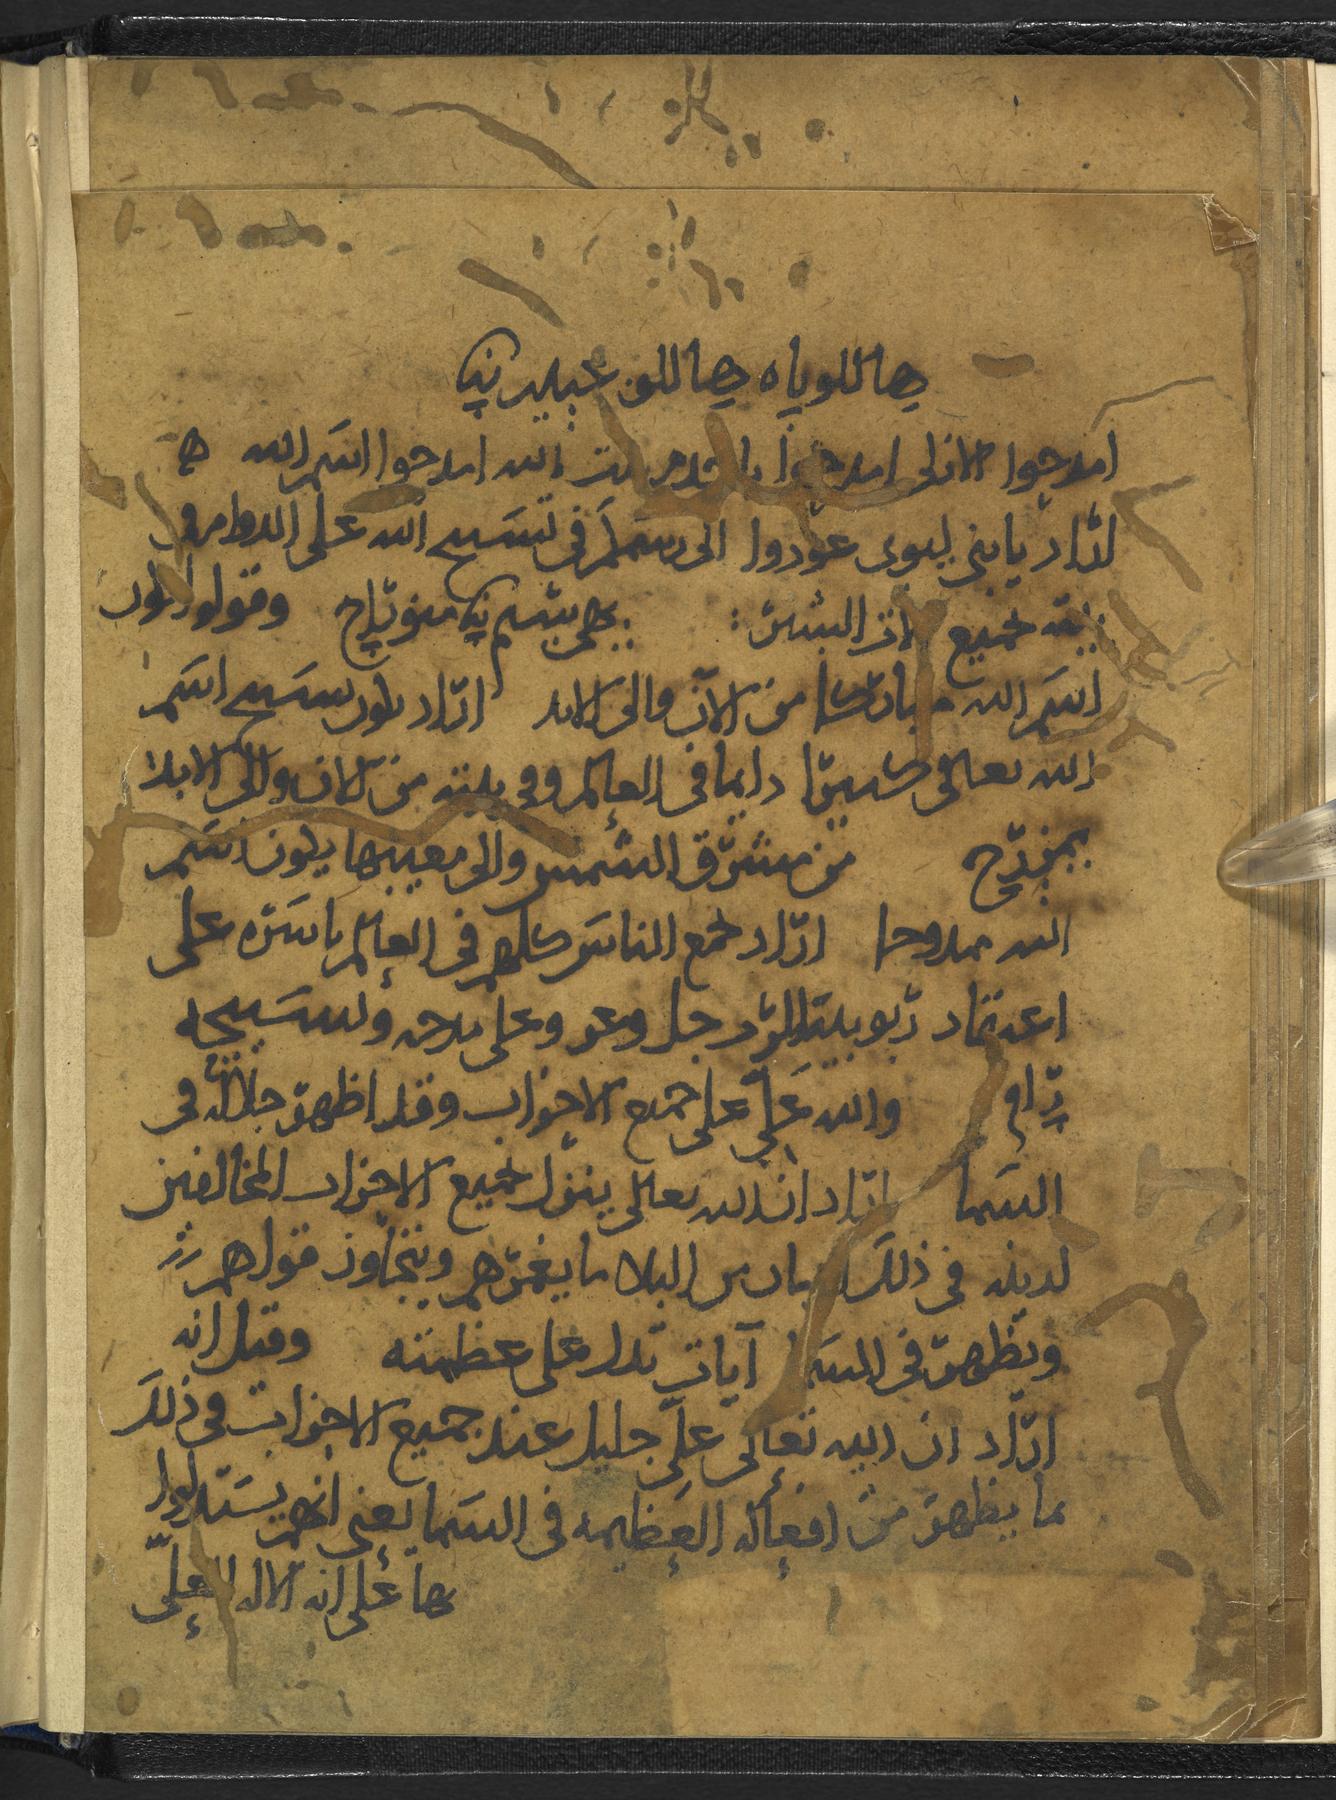 هاللوياه هاللو عبديي
امدحوا الازلى امدحوا يا خدام بيت الله امدحوا اسم الله
اراد يا بني ليوى عودوا الى رسمكم في تسبيح الله على الدوام في
بيته جميع البشر: يهي شيم يي مبوراخ وقولوا يكون
اسم الله مباركا من الان والى الابد اراد يكون تسبيح اسم
الله تعالى كثيرا دايما في العالم وفي بيته من الان والى الابد
ممزرح من مشرق الشمس والى مغيبها يكون اسم
الله ممدوحا اراد جميع الناس كلهم في العالم باسره على
اعتقاد ربوبية الرب جل وعز وعلى مدحه وتسبيحه
رام والله على على جميع الاحزاب وقد اظهر جلاله في
السما اراد ان الله تعالى ينزل بجميع الاحزاب المخالفين
لدينه في ذلك من البلا ما يغمرهم ويتجاوز قولهم
ويظهر في السما آيات تدل على عظمته وقيل انه
اراد ان الله تعالى على جليل عند جميع الاحزاب في ذلك
ما يظهر من افعاله العظيمه في السما يعني انهم يستدلوا
بها على انه الاله العلي